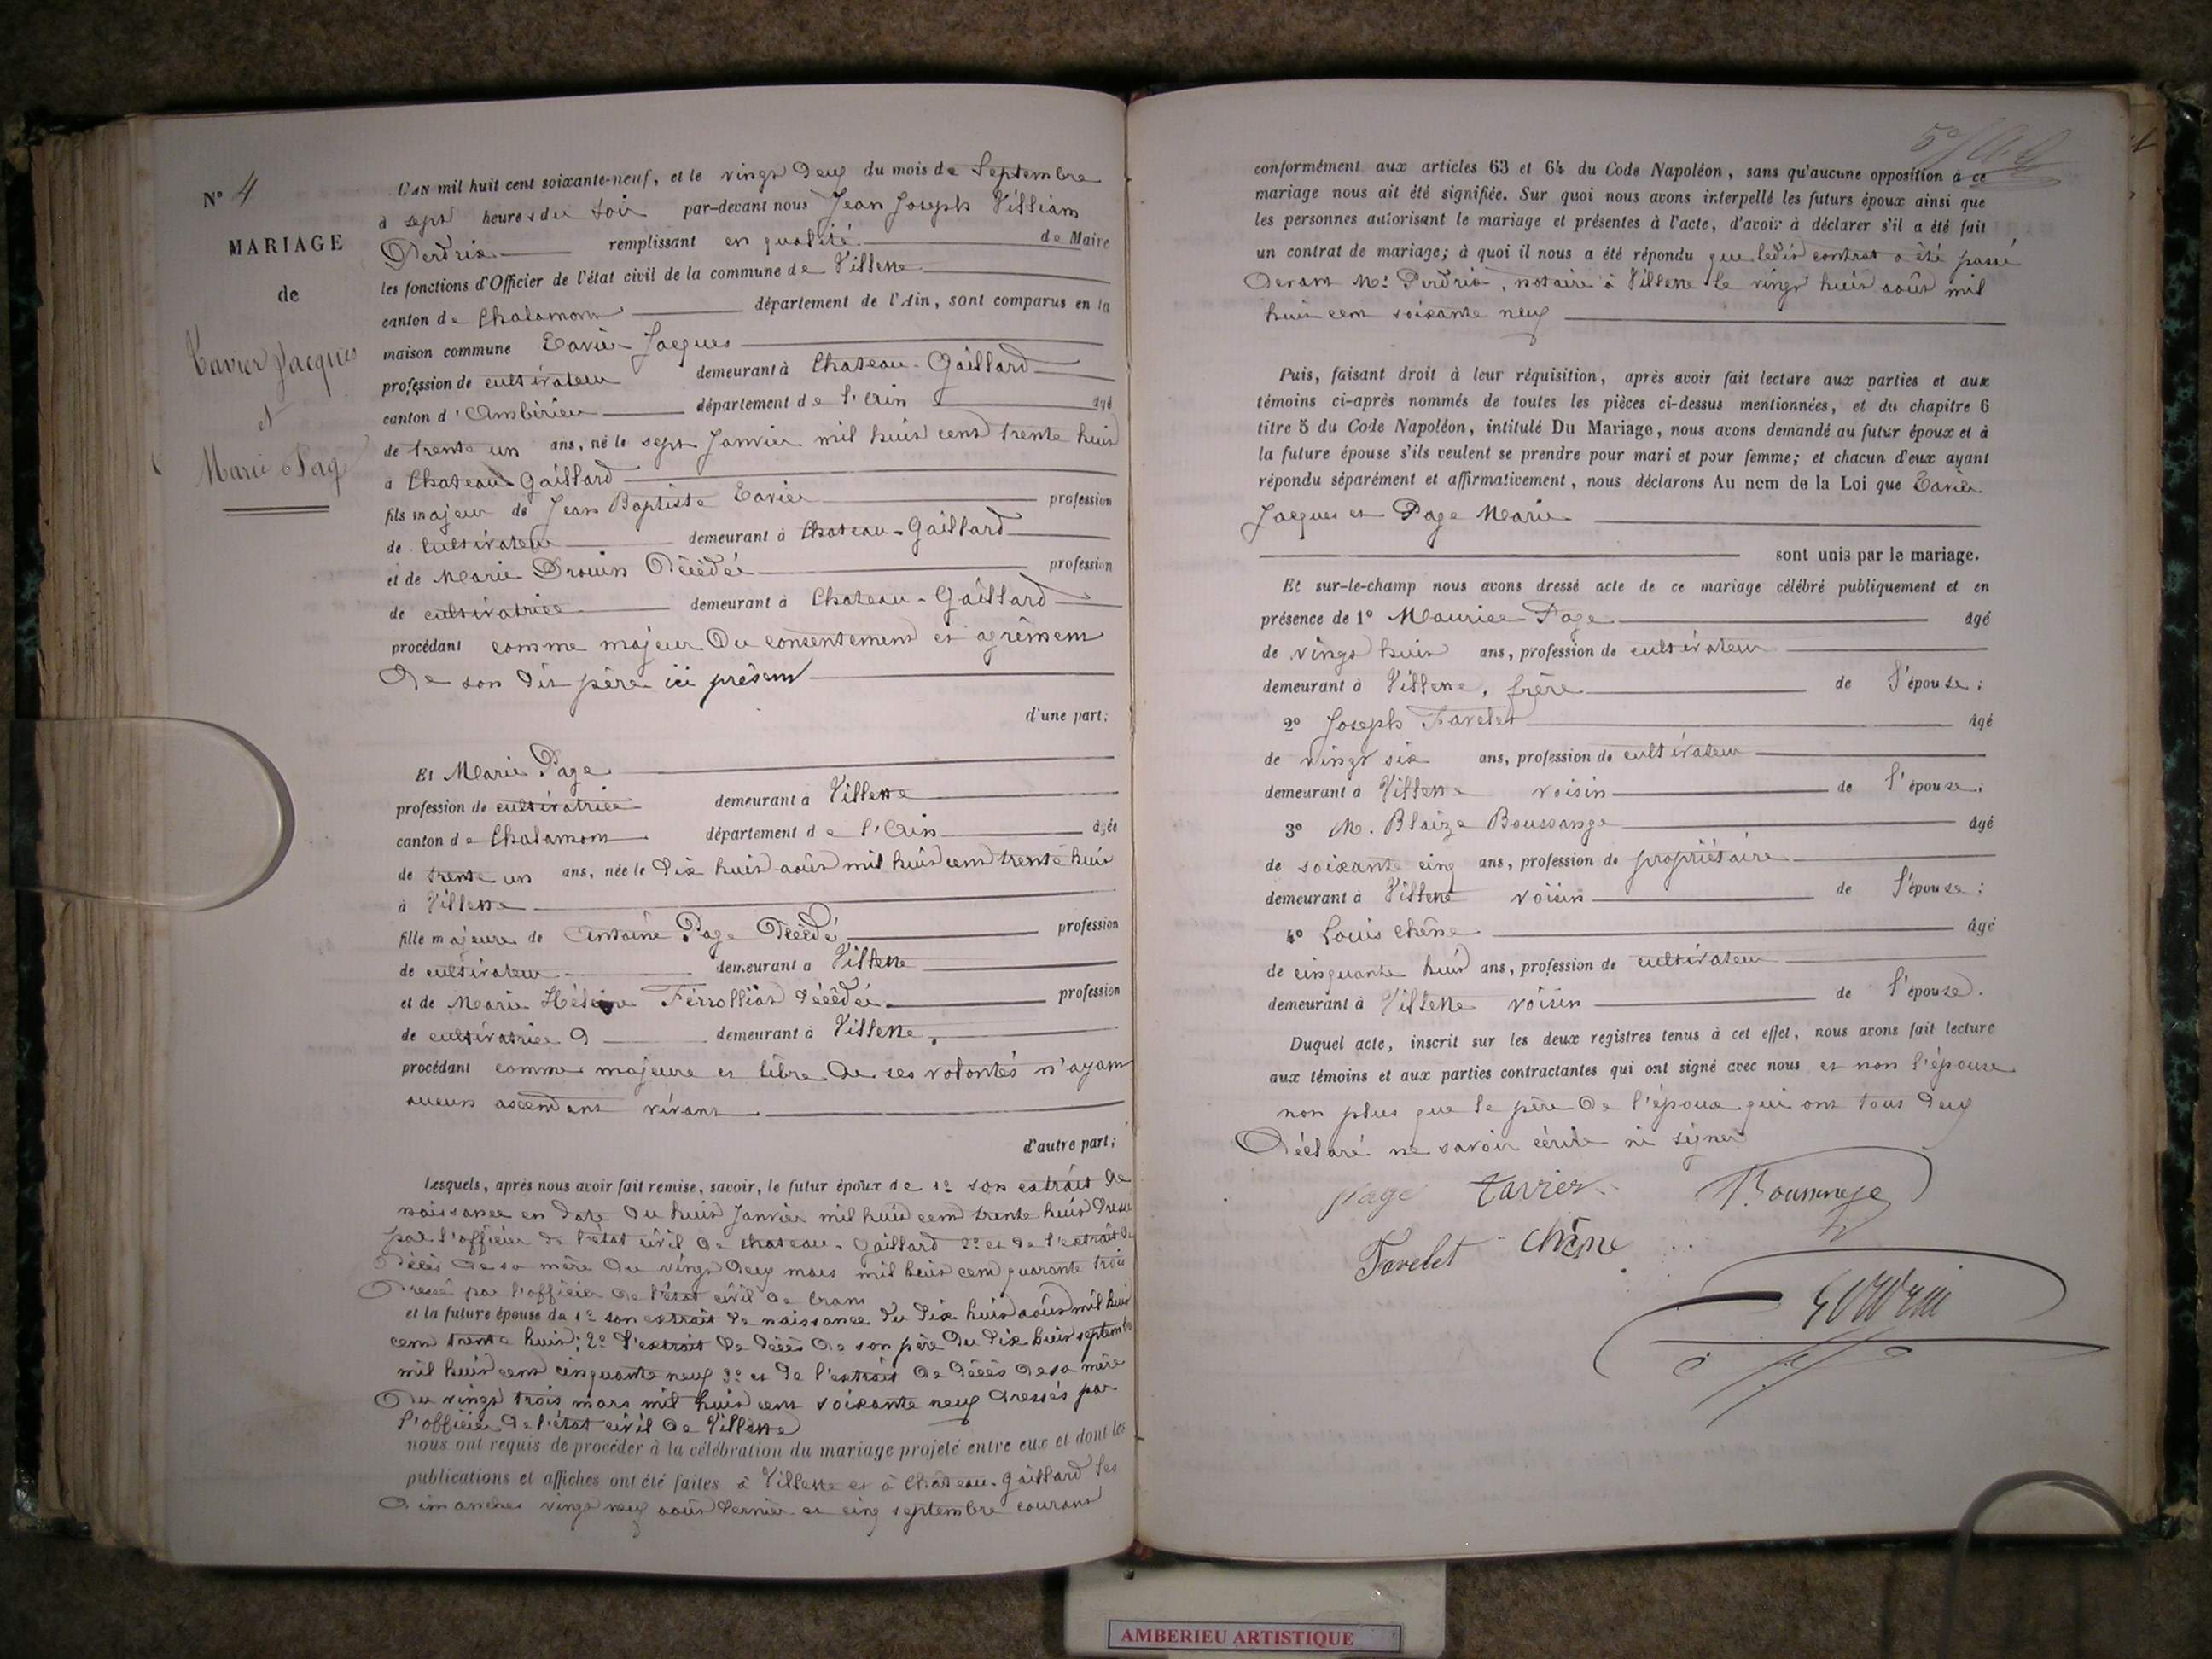 N° 4
MARIAGE
de
Tavier Jacques
et
Marie Page
L'an mil huit cent soixante-neuf, et le vingt deux du mois de Septembre
à sept heures du soir par-devant nous Jean Joseph Villiam
Perdrix remplissant en qualité de Maire
les fonctions d'Officier de l'état civil de la commune de Villette
canton de Chalamont département de l'Ain, sont comparus en la
maison commune Tavier Jacques
profession de cultivateur demeurant à Chateau-Gaillard
canton d'Ambérieu département de l'Ain âgé
de trente un ans, né le sept Janvier mil huit cent trente huit
à Chateau Gaillard
fils majeur de Jean Baptiste Tavier profession
de cultivateur demeurant à Chateau-Gaillard
et de Marie Drouin Décédée profession
de cultivatrice demeurant à Chateau-Gaillard
procédant comme majeur Du consentement et agrément
De son dit père ici présent
d'une part;
Et Marie Page
profession de cultivatrice demeurant à Villette
canton de Chalamont département de l'Ain âgée
de trente un ans, née le dix huit août mil huit cent trente huit
à Villette
fille majeure de Antoine Page Décédé profession
de cultivateur demeurant à Villette
et de Marie Férrolliat décédée profession
de cultivatrice demeurant à Villette.
procédant comme majeure et libre de ses volontés n'ayant
aucun ascendant vivant
d'autre part;
Lesquels, après nous avoir fait remise, savoir, le futur époux de 1° son extrait de
naissance en date du huit Janvier mil huit cent trente huit dressé
par l'officier de l'état civil de chateau-Gaillard 2° et de l'extrait de
Décès de sa mère du vingt deux mars mil huit cent quarante trois
Dressé par l'officier de l'état civil de Crans
et la future épouse de 1° son extrait de naissance du dix huit août mil huit
cent trente huit; 2° l'extrait de décès de son père du dix huit septembre
mil huit cent cinquante neuf 3° et de l'extrait de décès de sa mère
Du vingt trois mars mil huit cent soixante neuf dressés par
l'officier de l'état civil de Villette
nous ont requis de procéder à la célébration du mariage projeté entre eux et dont les
publications et affiches ont été faites à Villette et à Château-Gaillard les
Dimanches vingt neuf août dernier et cinq septembre courant
conformément aux articles 63 et 64 du Code Napoléon, sans qu'aucune opposition à ce
mariage nous ait été signifiée. Sur quoi nous avons interpellé les futurs époux ainsi que
les personnes autorisant le mariage et présentes à l'acte, d'avoir à déclarer s'il a été fait
un contrat de mariage; à quoi il nous a été répondu que ledit contrat a été passé
Devant Me Perdrix, notaire à Villette le vingt huit août mil
huit cent soixante neuf
Puis, faisant droit à leur réquisition, après avoir fait lecture aux parties et aux
témoins ci-après nommés de toutes les pièces ci-dessus mentionnées, et du chapitre 6
titre 5 du Code Napoléon, intitulé Du Mariage, nous avons demandé au futur époux et à
la future épouse s'ils veulent se prendre pour mari et pour femme; et chacun d'eux ayant
répondu séparément et affirmativement, nous déclarons Au nom de la Loi que Tavier
Jacques et Page Marie
sont unis par le mariage.
Et sur-le-champ nous avons dressé acte de ce mariage célébré publiquement et en
présence de 1° Maurice Page âgé
de vingt huit ans, profession de cultivateur
demeurant à Villette, frère de l'épouse;
2° Joseph Favelet âgé
de vingt six ans, profession de cultivateur
demeurant à Villette voisin de l'épouse;
3° M. Blaize Boussange âgé
de soixante cinq ans, profession de propriétaire
demeurant à Villette voisin de l'épouse;
4° Louis Chêne âgé
de cinquante huit ans, profession de cultivateur
demeurant à Villette voisin de l'épouse.
Duquel acte, inscrit sur les deux registres tenus à cet effet, nous avons fait lecture
aux témoins et aux parties contractantes qui ont signé avec nous et non l'épouse
non plus que le père de l'époux qui ont tous deux
Déclaré ne savoir écrire ni signer
page tavier Boussange
Favelet chêne
AMBERIEU ARTISTIQUE